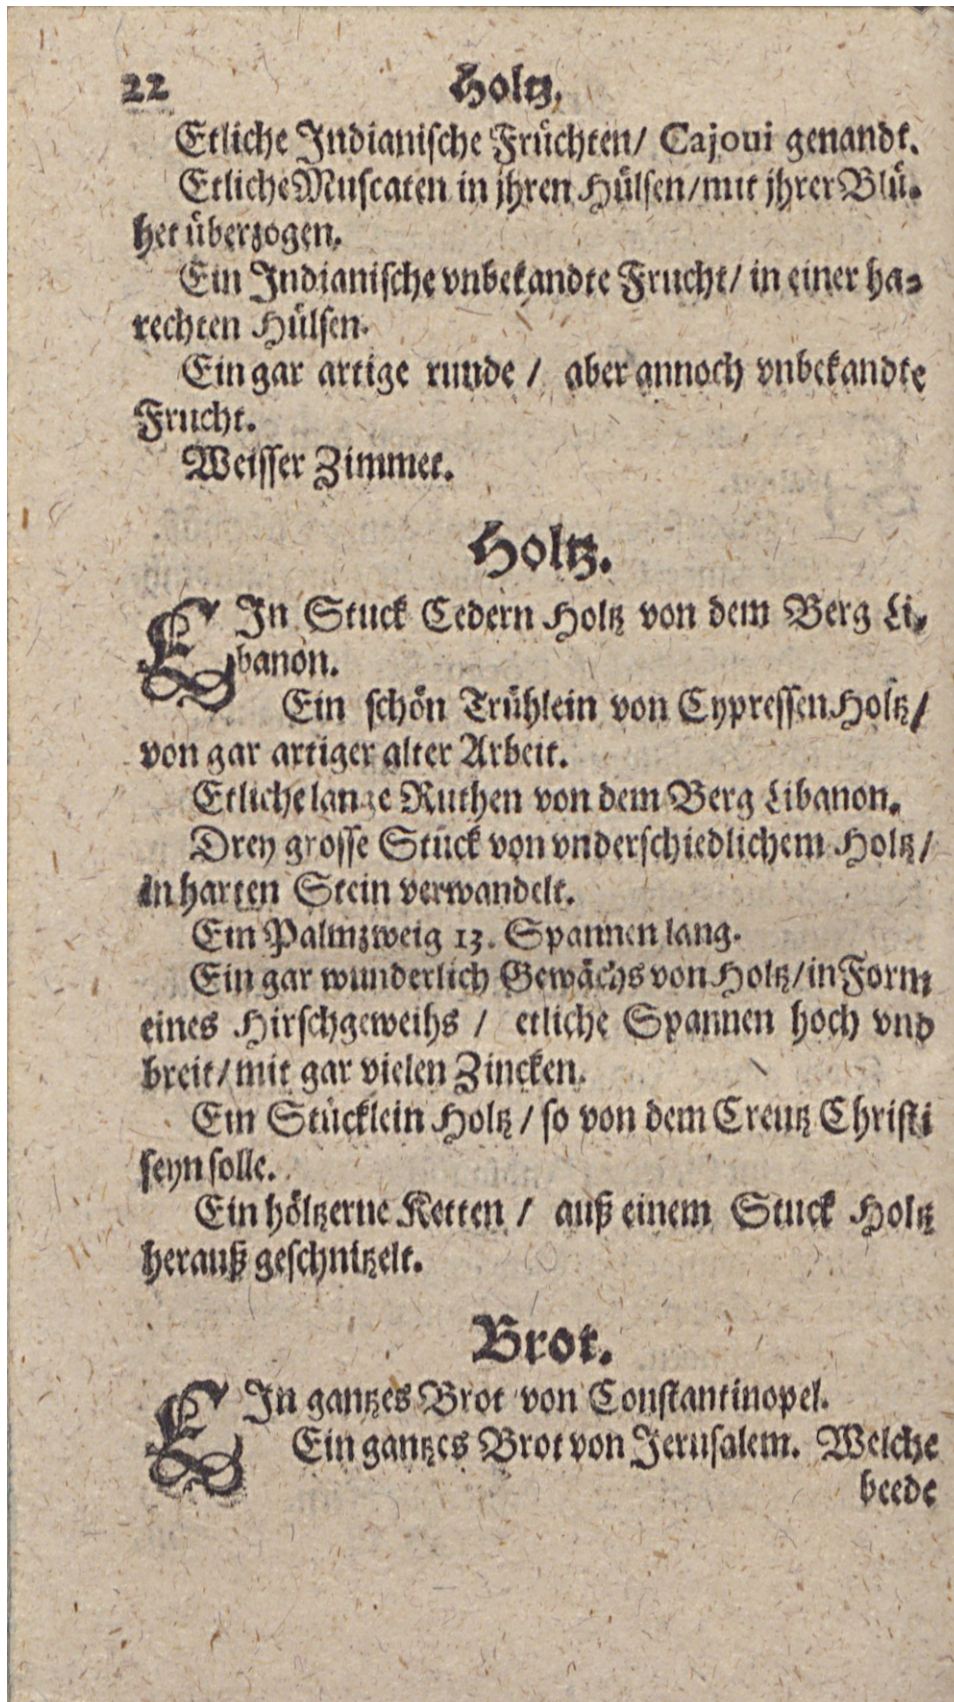 22 Holtz.
Etliche Indianische Früchten/ Cajoui genandt.
Etliche Muscaten in jhren Hülsen/mit jhrer Blü-
het überzogen.
Ein Indianische vnbekandte Frucht/ in einer ha-
rechten Hülsen.
Ein gar artige runde / aber annoch vnbekandte
Frucht.
Weisser Zimmet.
Holtz.
EIn Stuck Cedern Holtz von dem Berg Li-
banon.
Ein schön Trühlein von Cypressen Holtz/
von gar artiger alter Arbeit.
Etliche lange Ruthen von dem Berg Libanon.
Drey grosse Stück von vnderschiedlichem Holtz/
in harten Stein verwandelt.
Ein Palmzweig 13. Spannen lang.
Ein gar wunderlich Gewächs von Holtz/in Form
eines Hirschgeweihs / etliche Spannen hoch vnd
breit/mit gar vielen Zincken.
Ein Stücklein Holtz / so von dem Creutz Christi
seyn solle.
Ein höltzerne Ketten / auß einem Stuck Holtz
herauß geschnitzelt.
Brot.
EIn gantzes Brot von Constantinopel.
Ein gantzes Brot von Jerusalem. Welche
beede